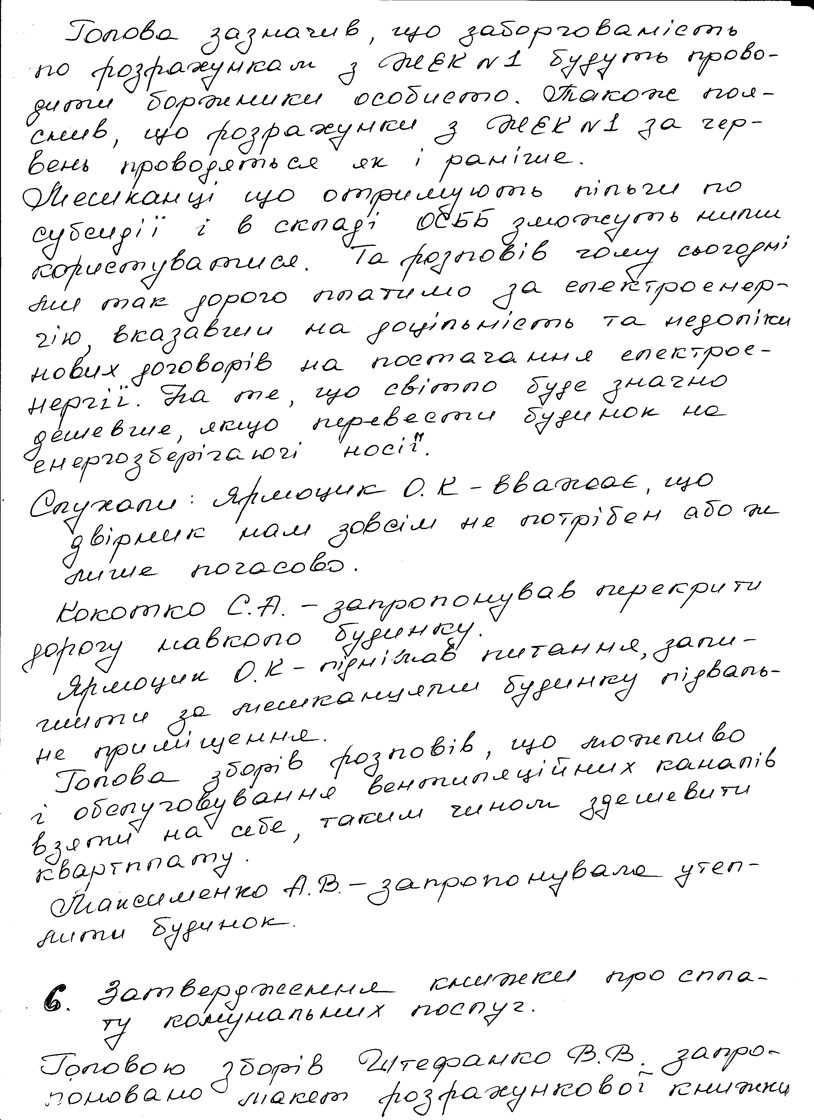 Голова зазначив, що заборгованість
по розрахункам з ЖЕК №1 будуть прово-
дити боржники особисто. Також поя-
снив, що розрахунки з ЖЕК №1 за чер-
вень проводяться як і раніше.
Мешканці що отримують пільги по
субсидії і в складі ОСББ зможуть ними
користуватися. Та розповів чому сьогодні
ми так дорого платимо за електроенер-
гію, вказавши на доцільність та недоліки
нових договорів на постачання електрое-
нергії. На те, що світло буде значно
дешевше, якщо перевести будинок на
енергозберігаючі носії.
Слухали: Ярмоцик О.К - вважає, що
двірник нам зовсім не потрібен або ж
лише почасово.
Кокотко С.А. - запропонував перекрити
дорогу навколо будинку.
Ярмоцик О.К - піднімав питання, зали-
шити за мешканцями будинку підваль-
не приміщення.
Голова зборів розповів, що можливо
і обслуговування вентиляційних каналів
взяти на себе, таким чином здешевити
квартплату.
Максименко А.В. - запропонувала утеп-
лити будинок.
6. Затвердження книжки про спла-
ту комунальних послуг.
Головою зборів Штефанко В.В. запро-
поновано макет розрахункової книжки